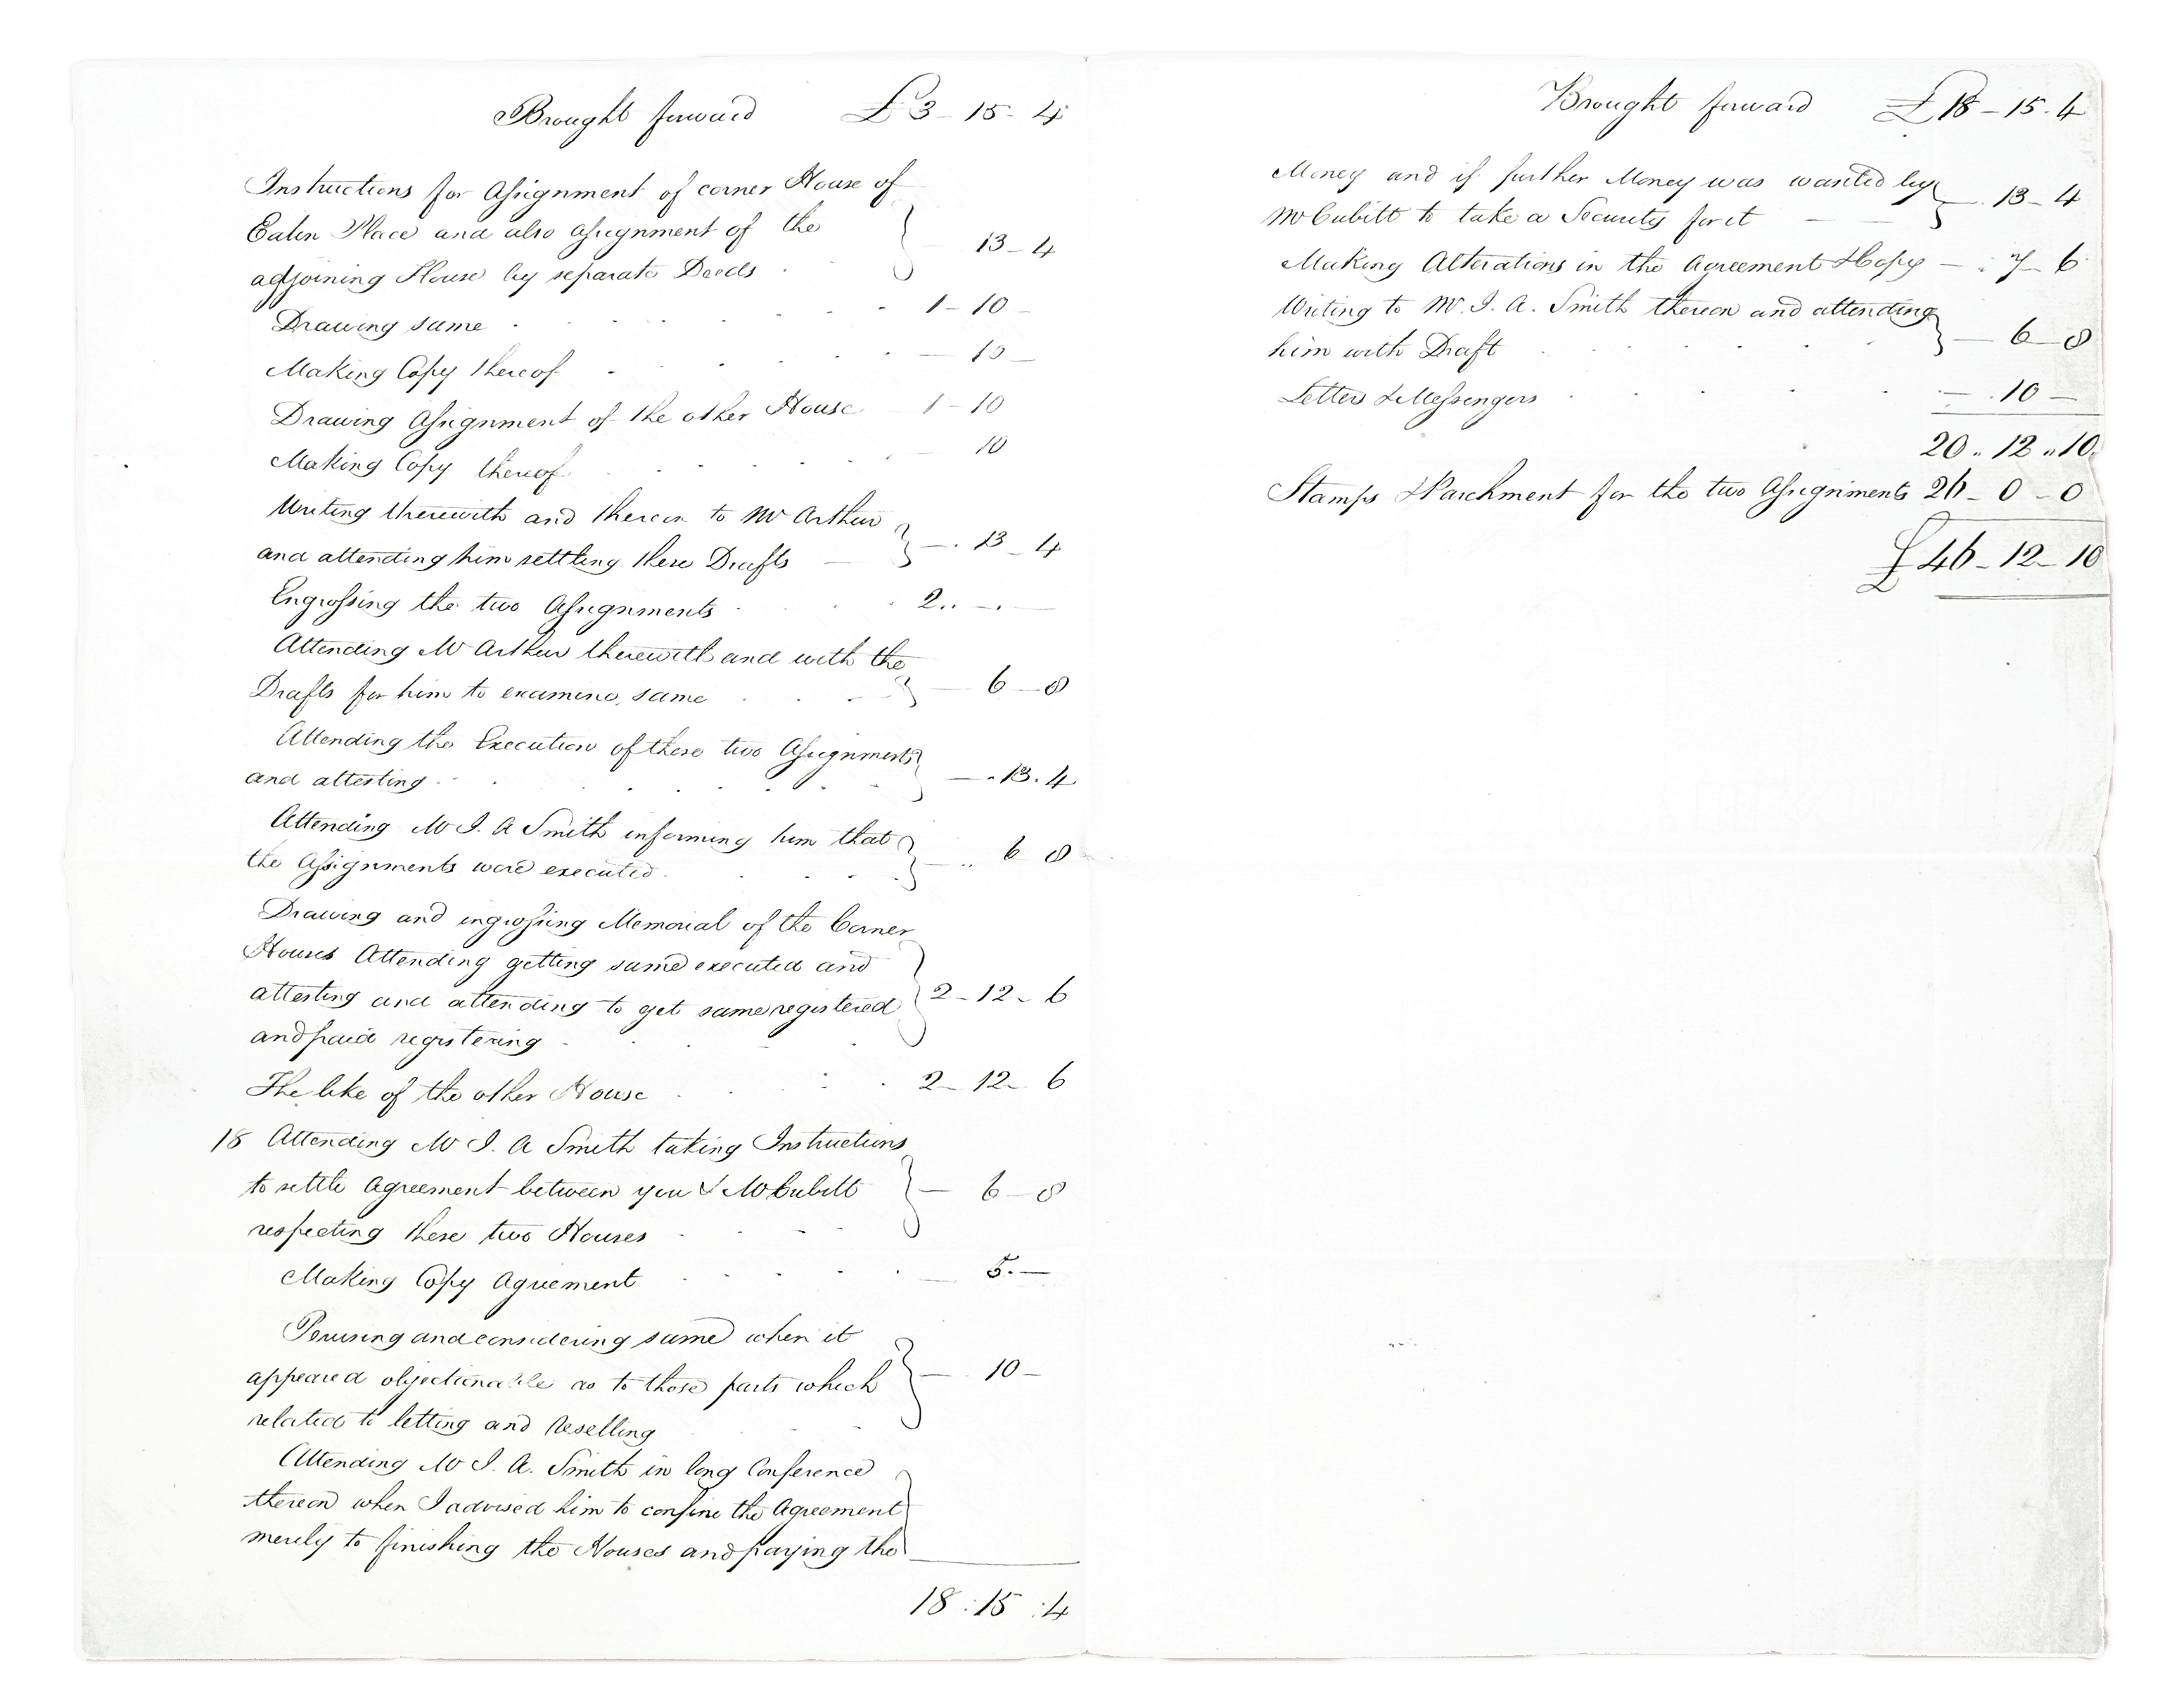 Brought forward £3 - 15 - 4
Instructions for Assignment of corner House of
Eaton Place and also Assignment of the
adjoining House by separate Deeds - 13 - 4
Drawing same 1 - 10 -
Making Copy thereof - 10 -
Drawing Assignment of the other House 1 - 10
Making Copy thereof 10
Writing therewith and thereon to Mr Arthur
and attending him settling these Drafts - 13 - 4
Engrossing the two Assignments 2 .. - . -
Attending Mr Arthur therewith and with the
Drafts for him to examine same - 6 - 8
Attending the Execution of these two Assignments
and attesting - . 13 . 4
Attending Mr I. A Smith informing him that
the Assignments were executed - .. 6 8
Drawing and ingrossing Memorial of the Corner
Houses Attending getting same executed and
attesting and attending to get same registered 2 - 12 - 6
and paid registering
The like of the other House 2 - 12 - 6
18 Attending Mr I. A Smith taking Instructions
to settle Agreement between you & Mr Cubitt - 6 - 8
respecting these two Houses
Making Copy Agreement - 5 . -
Perusing and considering same when it
appeared objectionable as to those parts which - 10 -
related to letting and reselling
Attending Mr I. A. Smith in long Conference
thereon when I advised him to confine the Agreement
merely to finishing the Houses and paying the
18 : 15 : 4
Brought forward £18 - 15 . 4
Money and if further Money was wanted by
Mr Cubitt to take a Security for it - . 13 - 4
Making Alterations in the Agreement & Copy - . 7 - 6
Writing to Mr. I. A. Smith thereon and attending
him with Draft - 6 - 8
Letters & Messengers - . 10 -
20 .. 12 .. 10
Stamps & Parchment for the two Assignments 26 - 0 - 0
£46 - 12 - 10